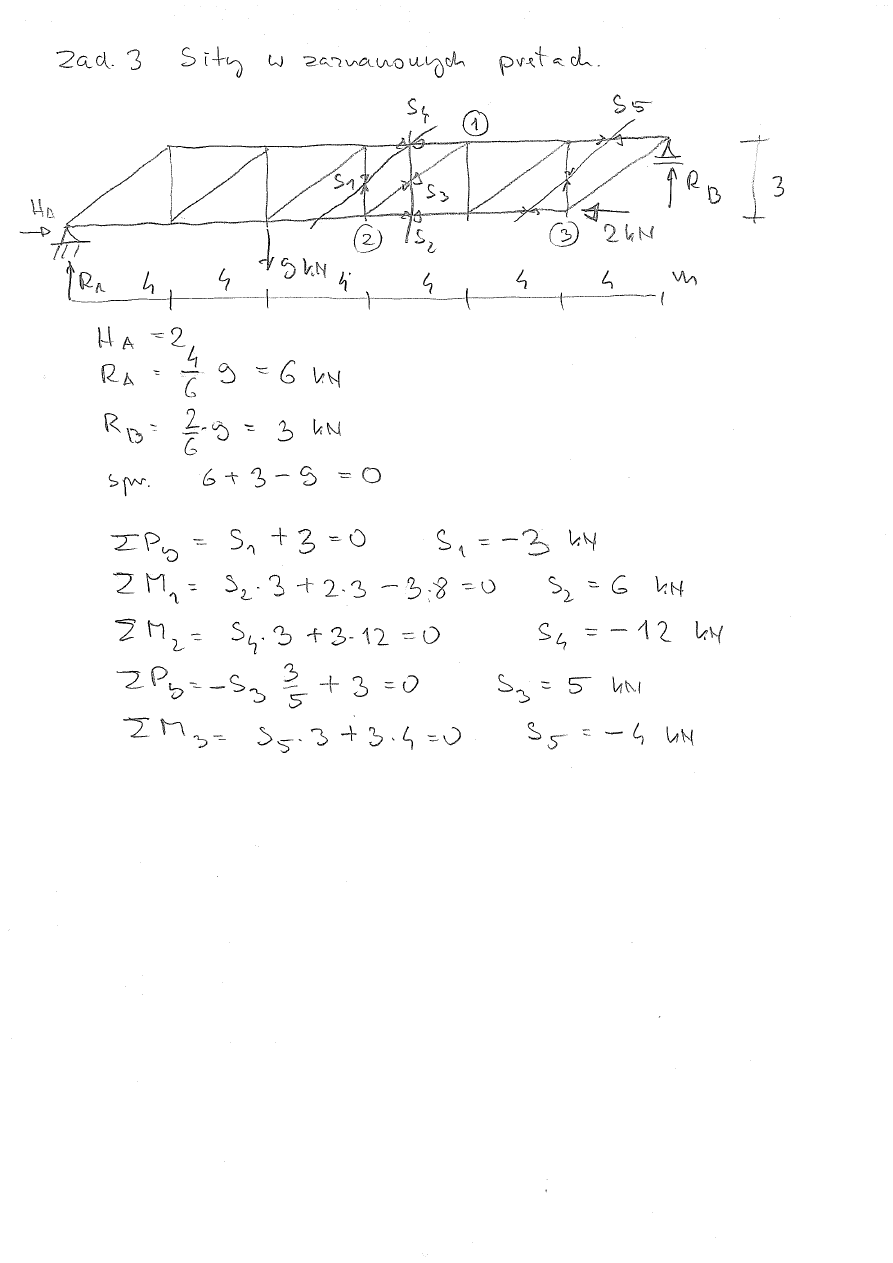 Zad. 3 Siły w zaznaczonych prętach.
S4 1 S5
HA S1 S3 RB 3
2 S2 3 2 kN
RA 9 kN
4 4 4 4 4 4 m
HA = 2
RA = 4/6 9 = 6 kN
RB = 2/6 · 9 = 3 kN
spr. 6 + 3 - 9 = 0
ΣPy = S1 + 3 = 0 S1 = -3 kN
ΣM1 = S2 · 3 + 2 · 3 - 3 · 8 = 0 S2 = 6 kN
ΣM2 = S4 · 3 + 3 · 12 = 0 S4 = -12 kN
ΣPy = -S3 3/5 + 3 = 0 S3 = 5 kN
ΣM3 = S5 · 3 + 3 · 4 = 0 S5 = -4 kN